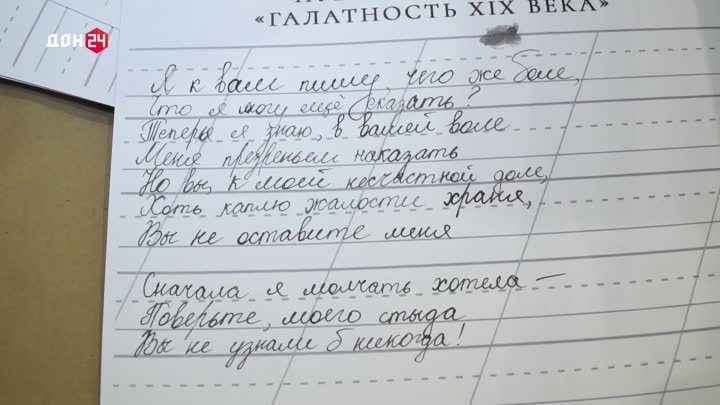 ДОН 24
«ГАЛАТНОСТЬ XIX ВЕКА»
Я к вам пишу, чего же боле,
Что я могу ещё сказать?
Теперь я знаю, в вашей воле
Меня презреньем наказать
Но вы, к моей несчастной доле,
Хоть каплю жалости храня,
Вы не оставите меня
Сначала я молчать хотела —
Поверьте, моего стыда
Вы не узнали б никогда!